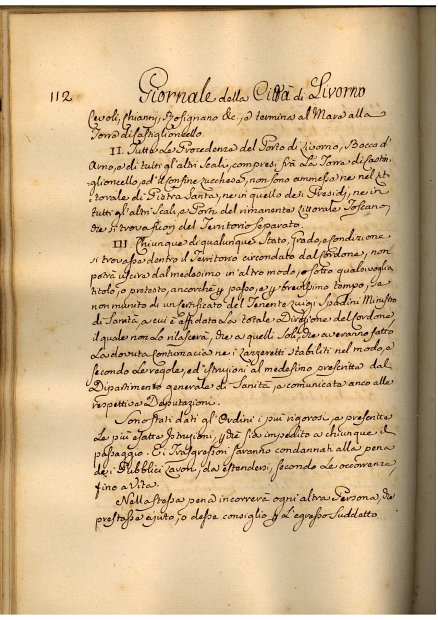 112 Giornale della Città di Livorno
Cevoli, Chianni, Rosignano &c. e termina al Mare alla
Torre di Castiglioncello.
II. Tutte Le Procedenze del Porto di Livorno, Bocca d'
Arno, e di tutti gl'altri Scali, compresi frà La Torre di Casti-
glioncello, ed il Confine Lucchese, non sono ammesse ne nel Lit-
torale di Pietra Santa, ne in quello de i Presidj, ne in
tutti gl'altri Scali, e Porti del rimanente Littorale Toscano,
che si trova fuori del Territorio separato.
III. Chiunque di qualunque Stato, Grado, e Condizione
si trovasse dentro il Territorio circondato dal Cordone, non
potrà uscire dal medesimo in altro modo, e sotto qualsivoglia
titolo, o pretesto, ancorchè p passo, e p brevissimo tempo, se
non munito di un Certificato del Tenente Luigi Spadini Ministro
di Sanità, a cui è affidata La totale Direzione del Cordone,
il quale non Lo rilascerà, che a quelli Soli, che averanno fatto
La dovuta Contumacia ne i Lazzeretti stabiliti nel modo, e
secondo Le regole, ed istruzioni al medesimo prescritte dal
Dipartimento generale di Sanità, e comunicate anco alle
respettive Deputazioni.
Sono stati dati gl'Ordini i più rigorosi, e prescritte
Le più esatte Istruzioni, p che sia impedito a chiunque il
passaggio. E i Trasgressori saranno condannati alla pena
de i Pubblici Lavori, da estendersi, secondo Le occorrenze
fino a Vita.
Nella stessa pena incorrerà ogni altra Persona, che
prestasse ajuto, o desse consiglio p L'egresso Suddetto